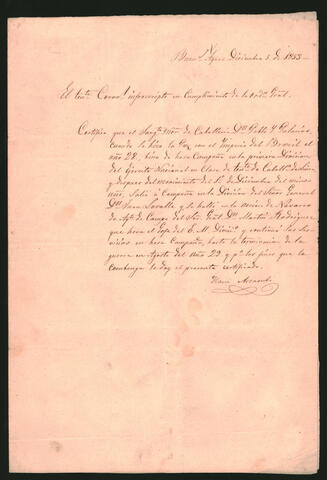 Buen.s Ayres Diciembre 5 de 1853
El tente Coron.l infrascripto en Cumplimiento de la ord.n Gral.
Certifica que el Sarg.to Mor. de Caballeria Dn. Pablo
cuando se hizo la Paz con el Imperio del Brasil el
año 28, hizo la Campaña en la primera Division
del Ejercito Nacional en Clase de de Caball.a
y despues del movimiento del 1.o de Diciembre del mismo
año, Salió a Campaña en la Division del Señor General
Dn. Juan Lavalle y se halló en la accion de Navarro
de Ay.te de Campo del Sor. Gral. Dn. Martin Rodriguez
que hera el Gefe del E. M. Divic.o y continuó sus Ser-
vicios en hesa Campaña, hasta la terminacion de la
guerra en Agosto del año 29 y p.a los fines que le
combenga le doy el presente certificado.